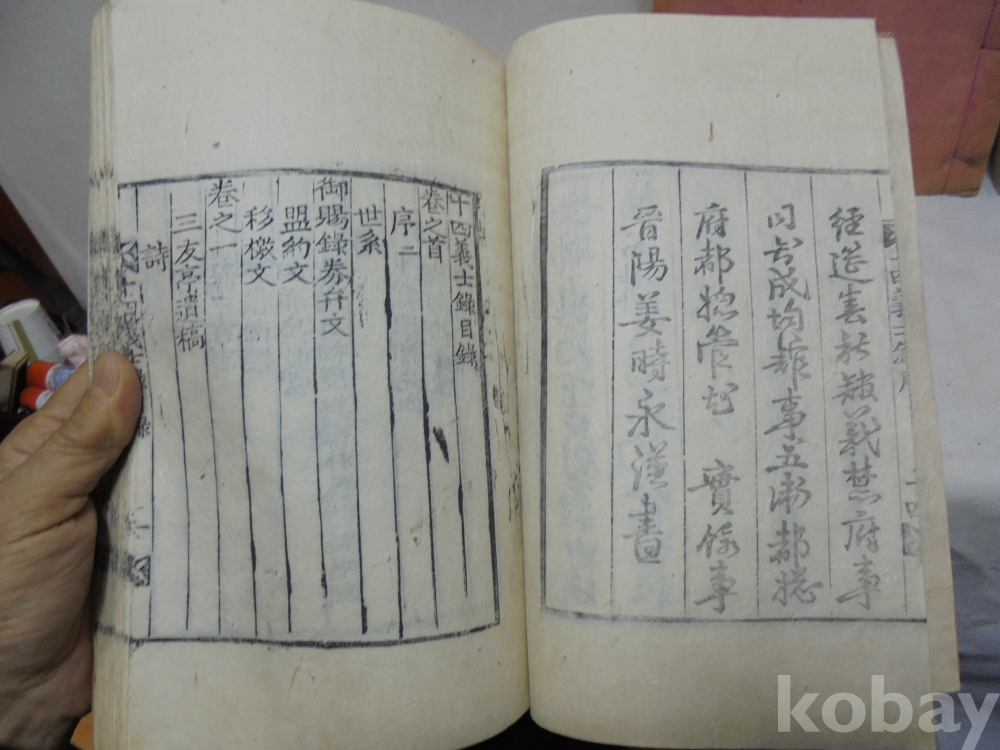 經筵春秋館義禁府事
同知成均館事五衛都摠
府都摠管 實錄事
晉陽姜時永謹書
十四義士錄目錄
卷之首
序二
世系
御賜錄券幷文
盟約文
移檄文
卷之一
三友亭遺稿
詩
kobay